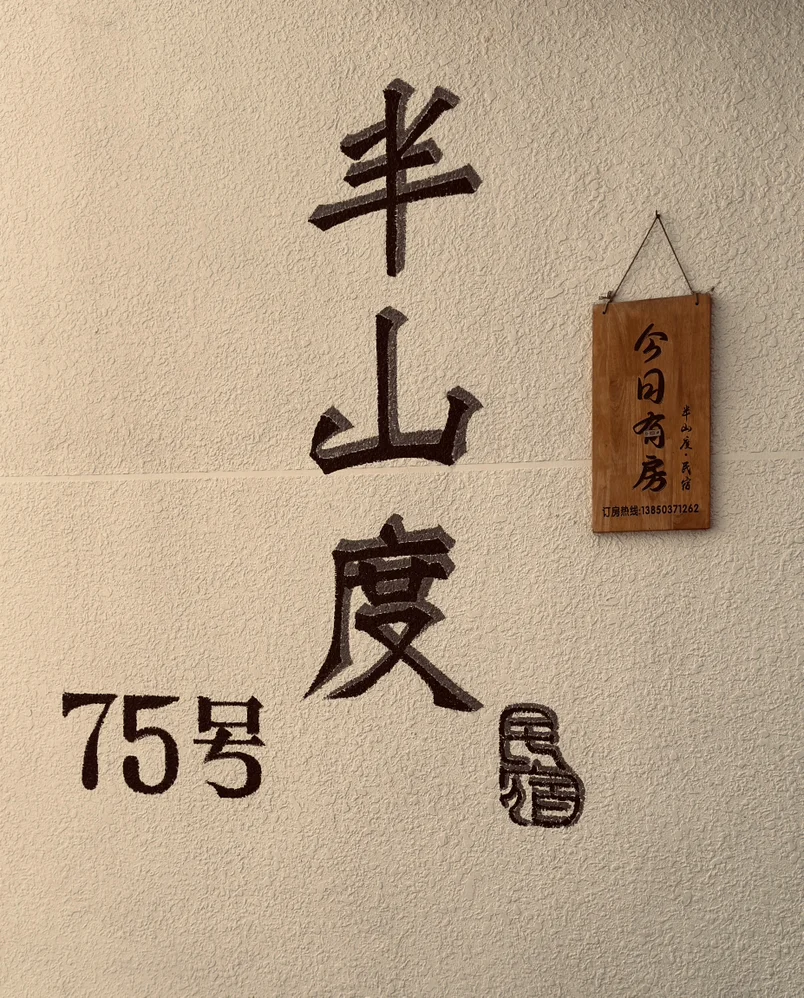 半山度
75号
民宿
今日有房
半山度·民宿
订房热线:13850371262